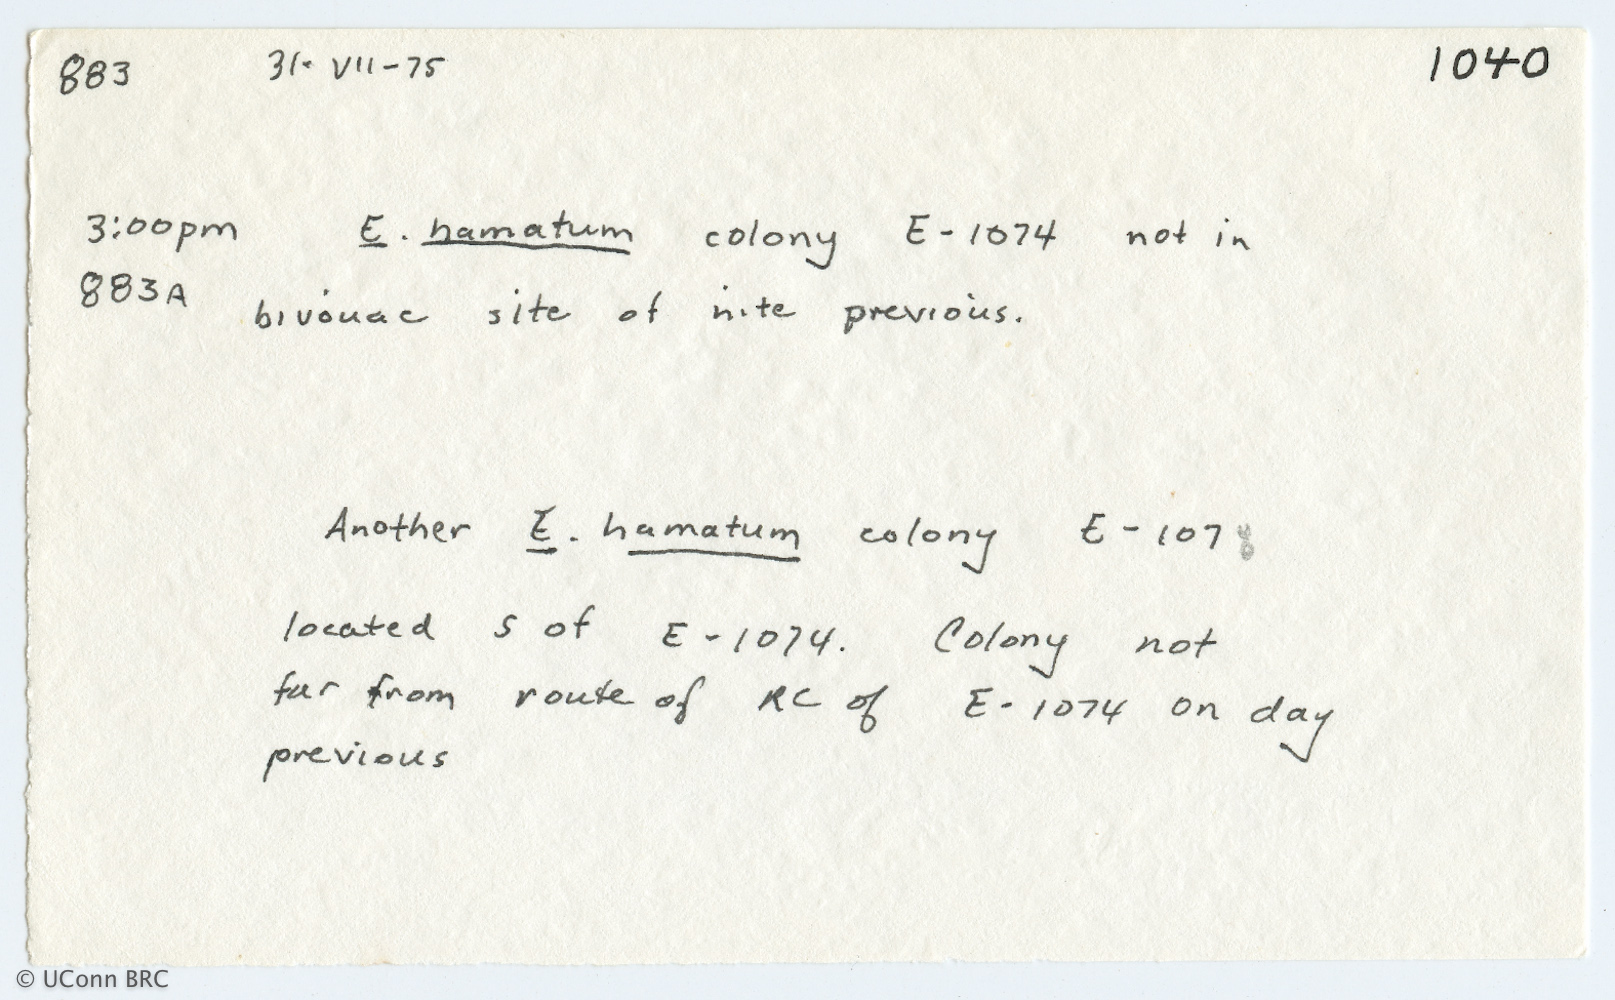 883 31-VII-75 1040
3:00pm E. hamatum colony E-1074 not in
883A bivouac site of nite previous.
Another E. hamatum colony E-1078
located S of E-1074. Colony not
far from route of RC of E-1074 on day
previous
© UConn BRC